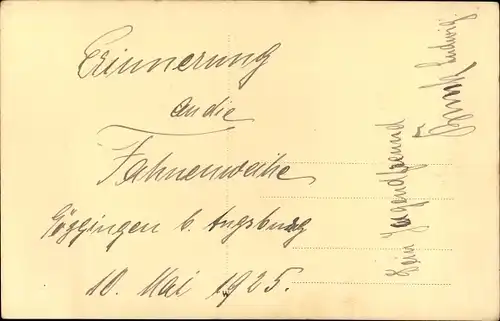 Erinnerung
an die
Fahnenweihe
Göggingen b. Augsburg
10. Mai 1925.
Dein Jugendfreund
Ludwig